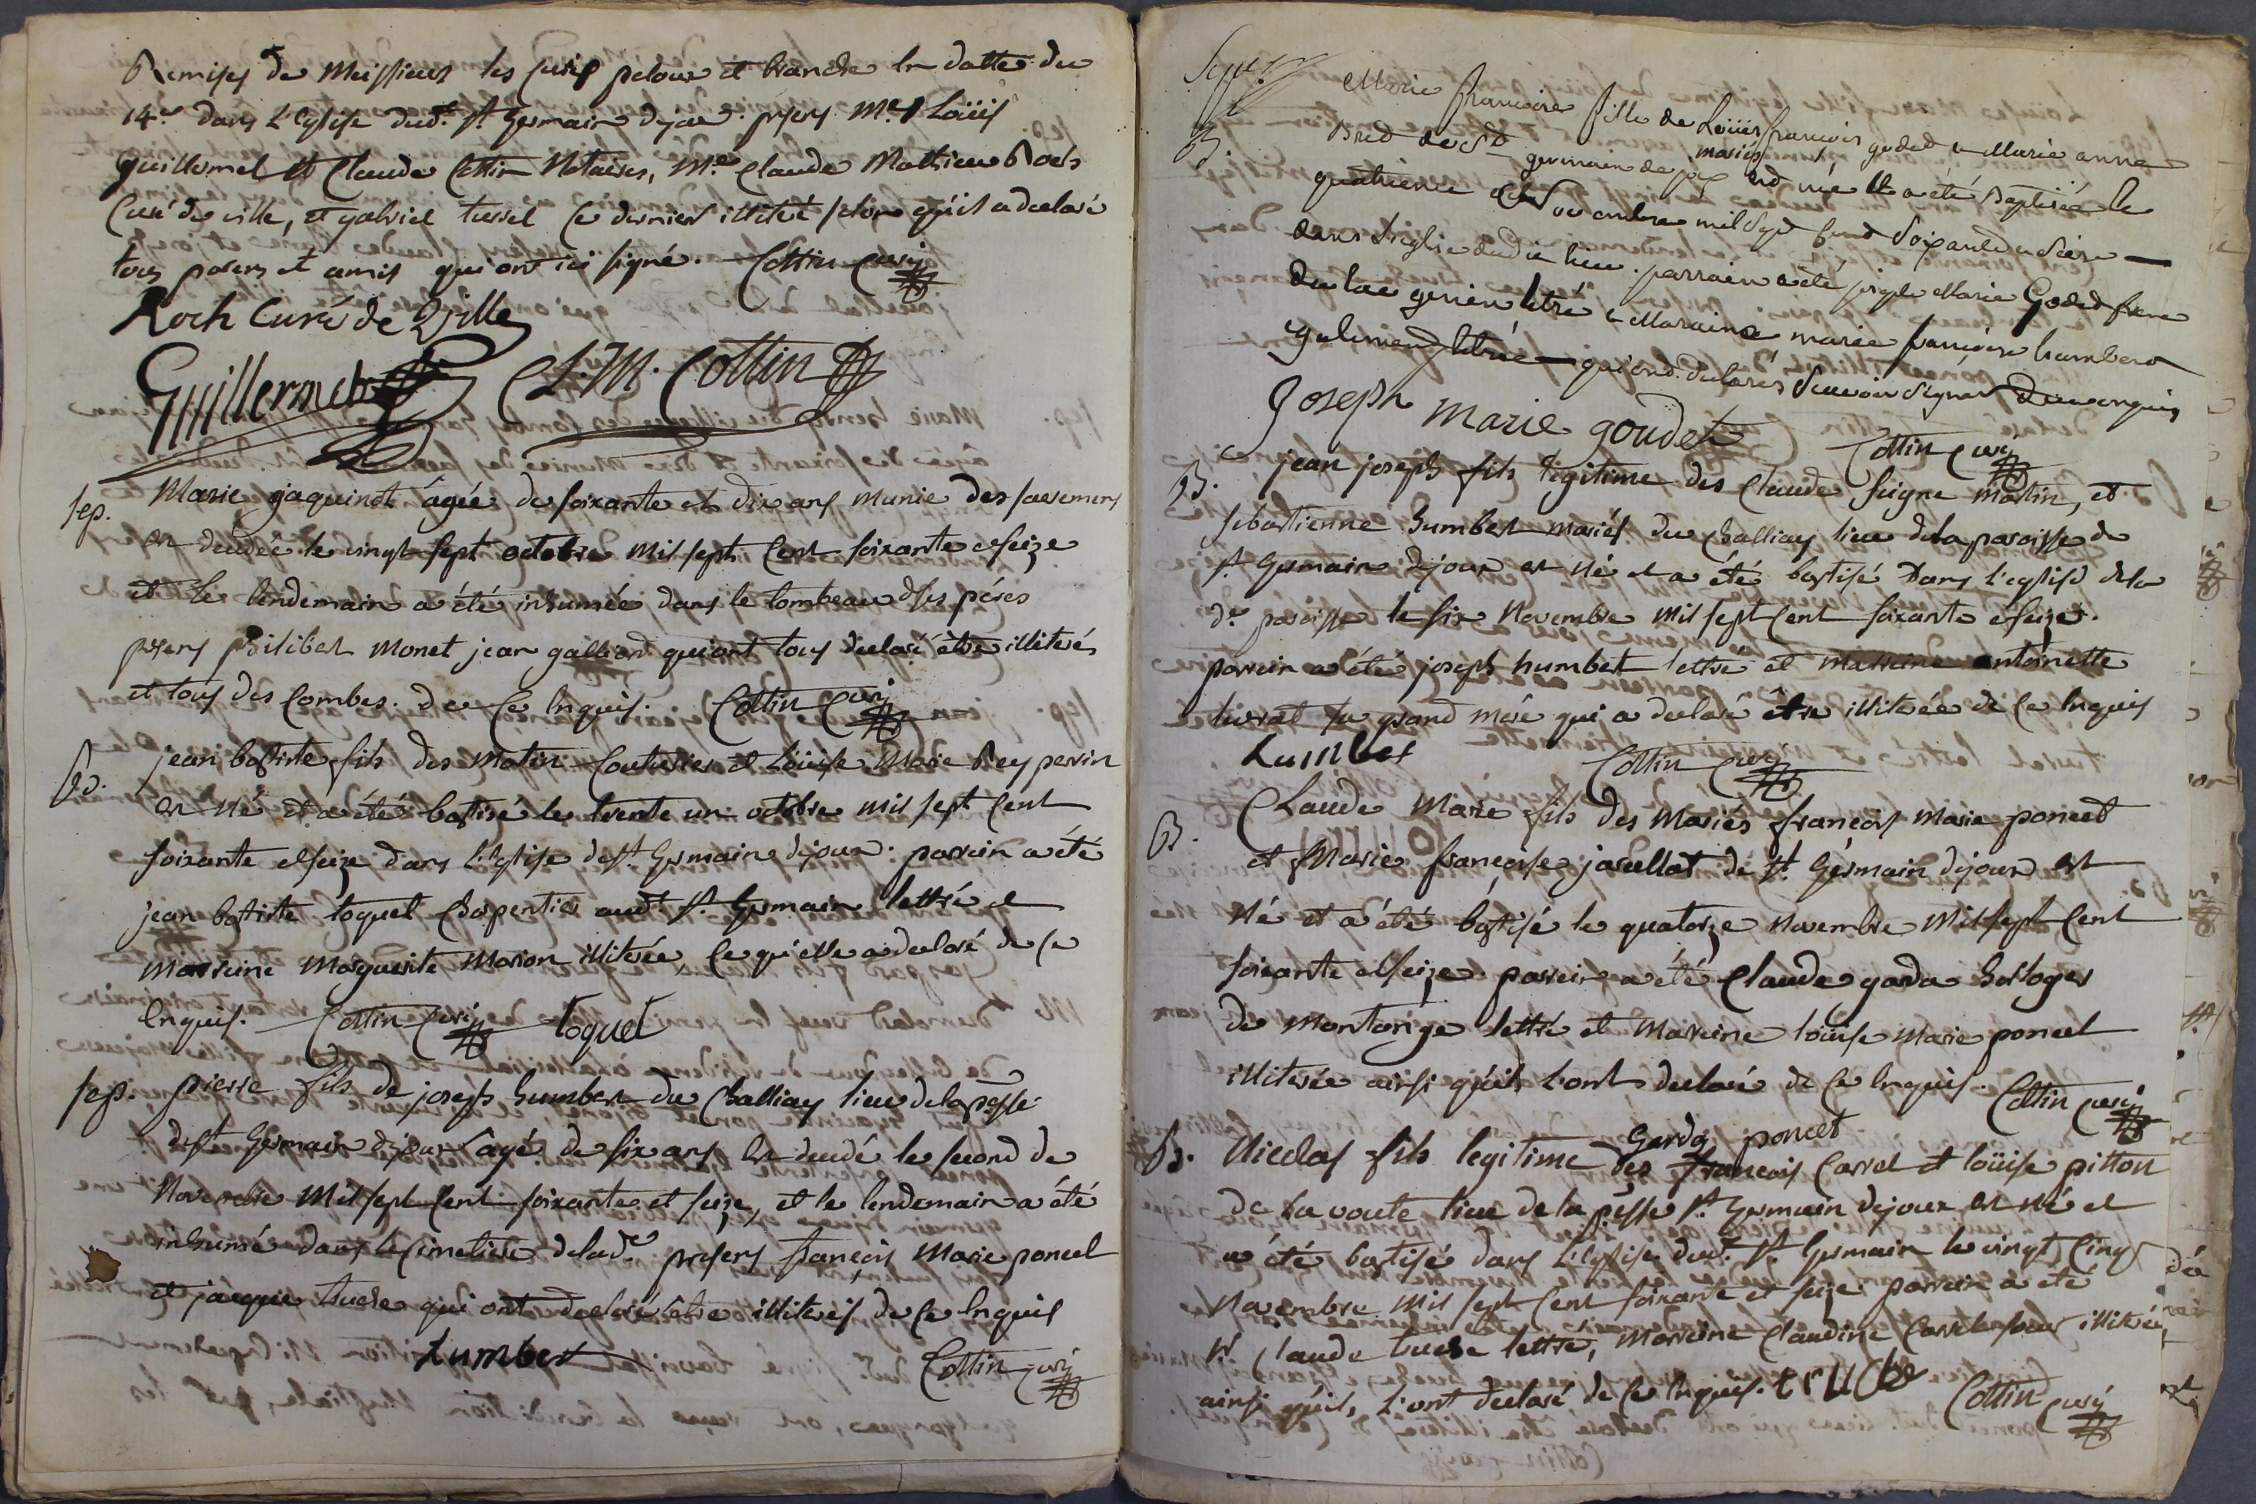 Remises de Messieurs les Curés peloux et brande en datte du
14e dans L'Eglise dud. St Germain dejoux. prsens Me Loüis
guillermet et Claude Cottin Notaires, Mre Claude Mathieu Roch
Curé de ville, et gabriel tussel Ce dernier illiteré selon qu'il a declaré
tous parens et amis qui ont ici signé. Cottin Curé
Roch Curé de Ville
Guillermet C.L.M. Cottin
sep. Marie jaquinot agée de soixante et dix ans munie des sacremens
est decedée le vingt sept octobre mil sept Cent soixante et seize
et Le lendemain a été inhumée dans le tombeau d ses pères
prsens philibert monet jean galliard qui ont tous declaré être illiterés
et tous des Combes. de Ce Enquis. Cottin Curé
B. jean baptiste fils des Matin Couturier et Loüise Marie Rey perrin
est Né et a été baptisé le trente un octobre mil sept Cent
soixante et seize dans L'Eglise de St Germain dejoux. parrain a été
jean baptiste toquet Charpentier aud. St Germain lettré et
marreine Marguerite Marion illiterée, Ce qu'elle a declaré de Ce
Enquis. Cottin Curé toquet
sep. pierre fils de joseph humbert du Challiay lieu de la psse
de St Germain dejoux agé de six ans est decedé le second de
Novembre Mil sept Cent soixante et seize, et le lendemain a été
inhumé dans le Cimetiere de lad. prsens françois Marie poncet
et jacque truche qui ont declaré être illiterés de Ce Enquis
humbert Cottin Curé
B. Marie françoise fille de Loüis françois goded et Marie anne
mariés
Bred de St germain de joux est née et a été baptisée le
quatrieme Novembre mil sept Cent soixante et seize
dans L'eglise dudit lieu. parrain a été joseph Marie Goded frere
de la geniere litré et Maraine marie françoise humbert
declarés sçavoir signer de ce enquis
Joseph marie goudet Cottin Curé
B. jean joseph fils legitime des Claude seigne martin, et
sebastienne humbert mariés du Challiay lieu de la paroisse de
St Germain dejoux est né et a été baptisé dans l'eglise de la
de paroisse le six Novembre mil sept Cent soixante et seize.
parrain a été joseph humbert lettré et marreine antoinette
tussat sa grand mere qui a declaré être illiterée de Ce Enquis
humbert Cottin Curé
B. Claude Marie fils des Mariés françois Marie poncet
et Marie françoise jasullat de St Germain dejoux est
Né et a été baptisé le quatorze Novembre Mil sept Cent
soixante et seize. parrein a été Claude garda horloger
de Montange lettré et Marreine loüise Marie poncet
illiterée ainsi qu'ils L'ont declaré de Ce Enquis. Cottin Curé
garda poncet
B. Nicolas fils legitime des françois Carrel et loüise pitton
de La voute lieu de la psse St Germain dejoux est Né et
a été baptisé dans L'Eglise dud. St Germain le vingt Cinq
Novembre Mil sept Cent soixante et seize parrein a été
Sr Claude truche lettré, Marreine Claudine Carrel sœur illiterée,
ainsi qu'ils L'ont declaré de Ce Enquis. truche Cottin Curé